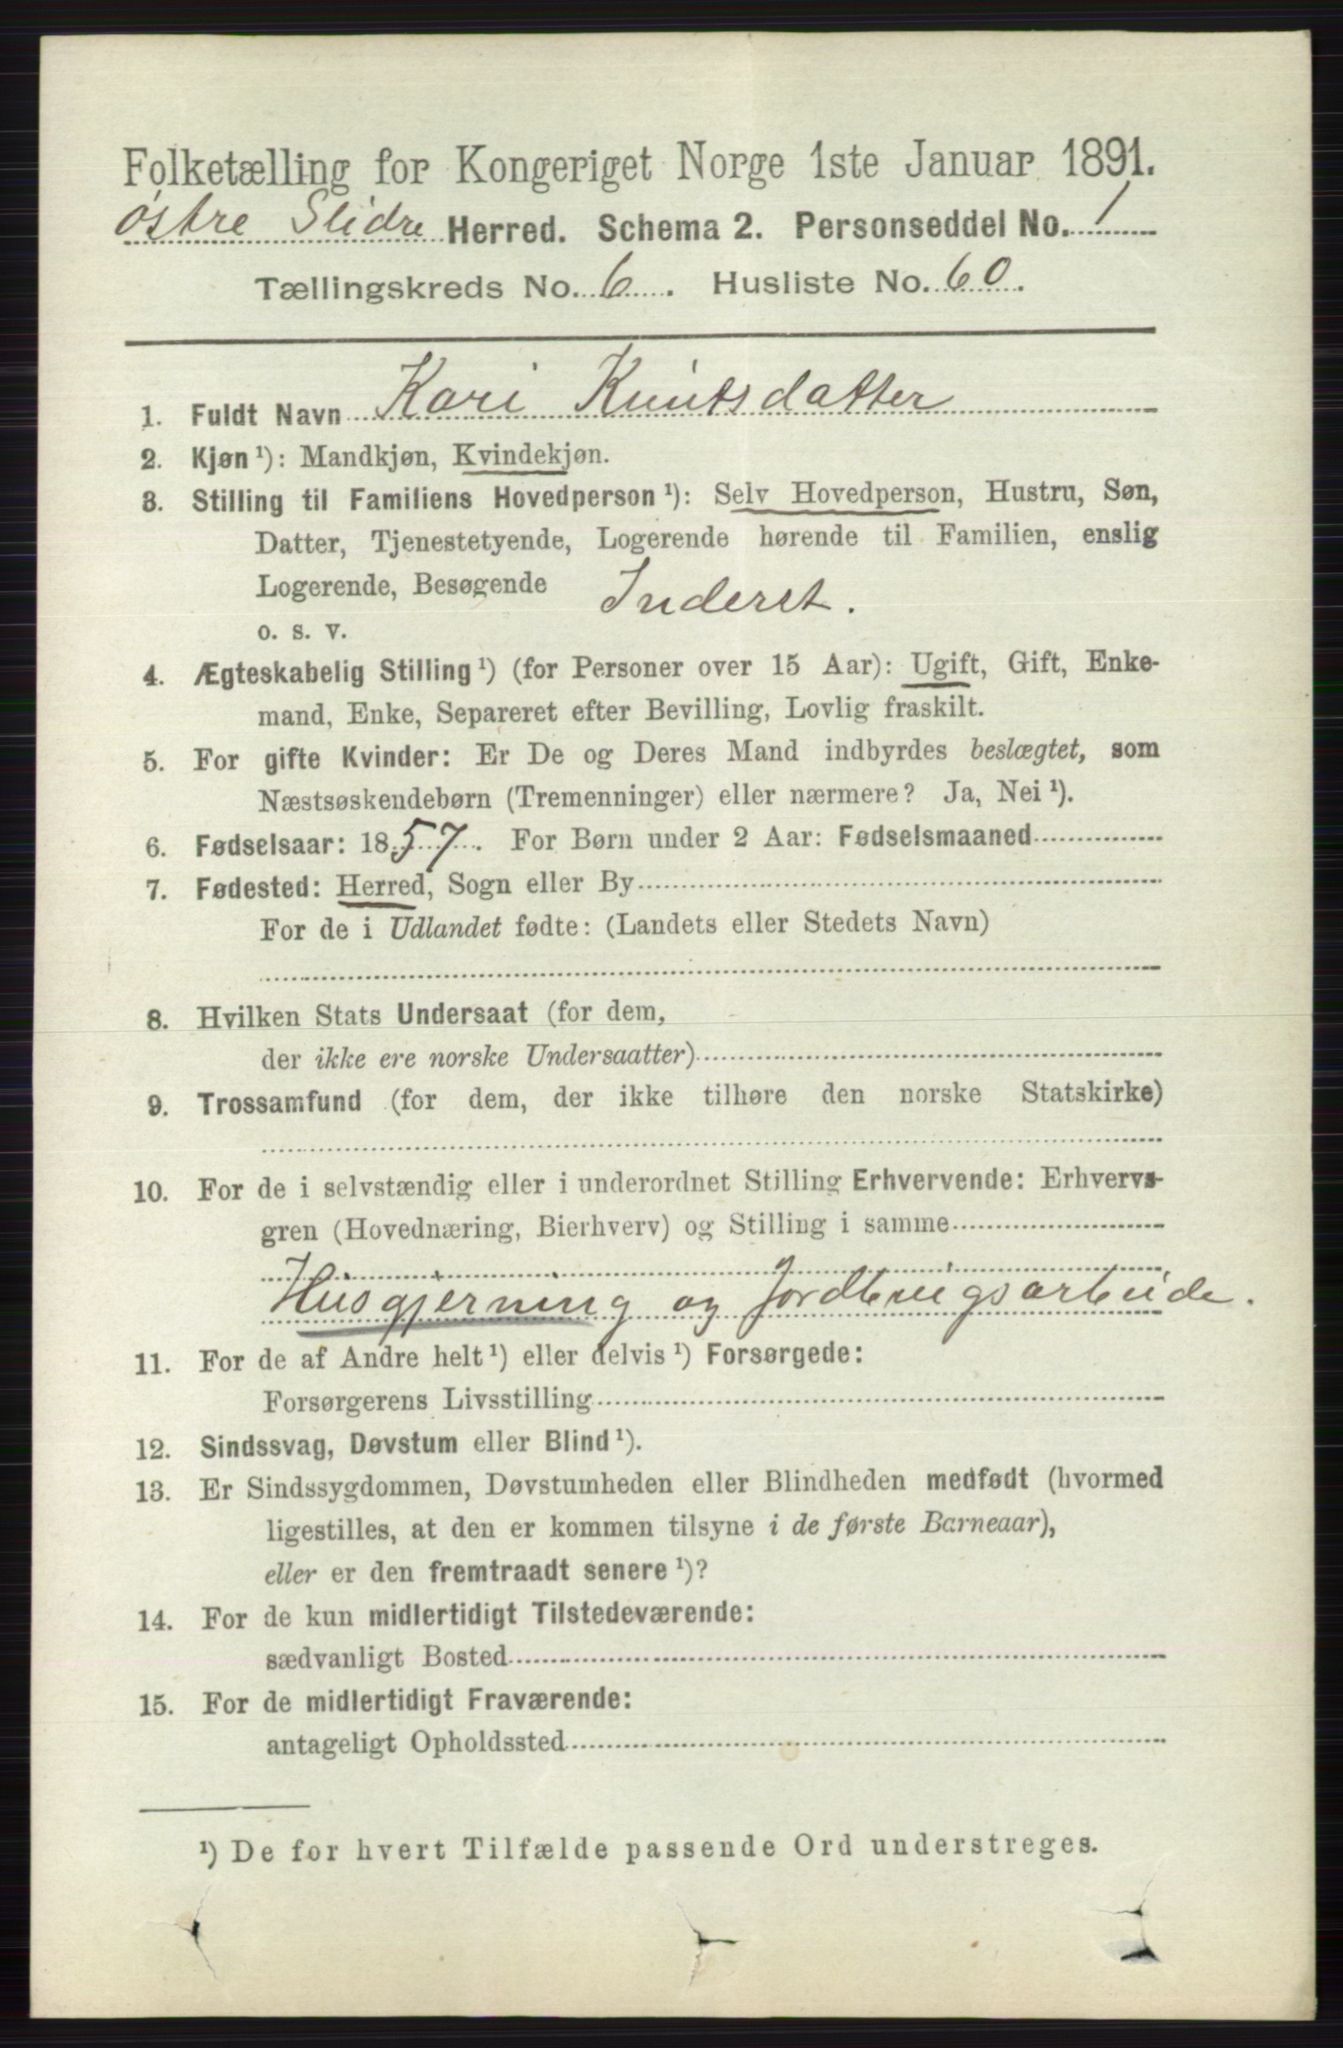 Folketælling for Kongeriget Norge 1ste Januar 1891.
Østre Slidre Herred. Schema 2. Personseddel No. 1
Tællingskreds No. 6. Husliste No. 60.
1. Fuldt Navn Kari Knutsdatter
2. Kjøn ¹): Mandkjøn, Kvindekjøn.
3. Stilling til Familiens Hovedperson ¹): Selv Hovedperson, Hustru, Søn,
Datter, Tjenestetyende, Logerende hørende til Familien, enslig
Logerende, Besøgende Inderst.
o. s. v.
4. Ægteskabelig Stilling ¹) (for Personer over 15 Aar): Ugift, Gift, Enke-
mand, Enke, Separeret efter Bevilling, Lovlig fraskilt.
5. For gifte Kvinder: Er De og Deres Mand indbyrdes beslægtet, som
Næstsøskendebørn (Tremenninger) eller nærmere? Ja, Nei ¹).
6. Fødselsaar: 1857. For Børn under 2 Aar: Fødselsmaaned
7. Fødested: Herred, Sogn eller By
For de i Udlandet fødte: (Landets eller Stedets Navn)
8. Hvilken Stats Undersaat (for dem,
der ikke ere norske Undersaatter)
9. Trossamfund (for dem, der ikke tilhøre den norske Statskirke)
10. For de i selvstændig eller i underordnet Stilling Erhvervende: Erhvervs-
gren (Hovednæring, Bierhverv) og Stilling i samme
Husgjerning og Jordbrugsarbeide.
11. For de af Andre helt ¹) eller delvis ¹) Forsørgede:
Forsørgerens Livsstilling
12. Sindssvag, Døvstum eller Blind ¹).
13. Er Sindssygdommen, Døvstumheden eller Blindheden medfødt (hvormed
ligestilles, at den er kommen tilsyne i de første Barneaar),
eller er den fremtraadt senere ¹)?
14. For de kun midlertidigt Tilstedeværende:
sædvanligt Bosted
15. For de midlertidigt Fraværende:
antageligt Opholdssted
¹) De for hvert Tilfælde passende Ord understreges.